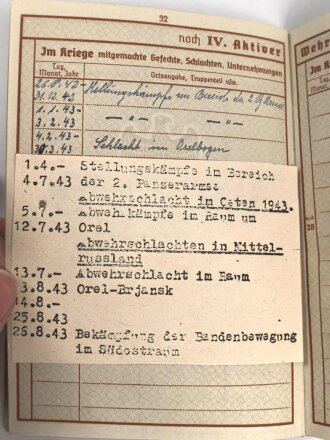 32
noch IV. Aktiver
Im Kriege mitgemachte Gefechte, Schlachten, Unternehmungen
Tag, Monat, Jahr
Ortsangabe, Truppenteil usw.
26.8.42- Stellungskämpfe im Bereich
31.12.42
1.1.43- — " — — " —
3.2.43
4.2.43- Schlacht im Orelbogen
31.3.43
1.4.- Stellungskämpfe im Bereich
4.7.43 der 2. Panzerarmee
Abwehrschlacht im Osten 1943.
5.7.- Abwehrkämpfe im Raum um
12.7.43 Orel
Abwehrschlachten in Mittel-
russland
13.7.- Abwehrschlacht im Raum
3.8.43 Orel-Brjansk
4.8.-
25.8.43
26.8.43 Bekämpfung der Bandenbewegung
im Südostraum
Wehr
28